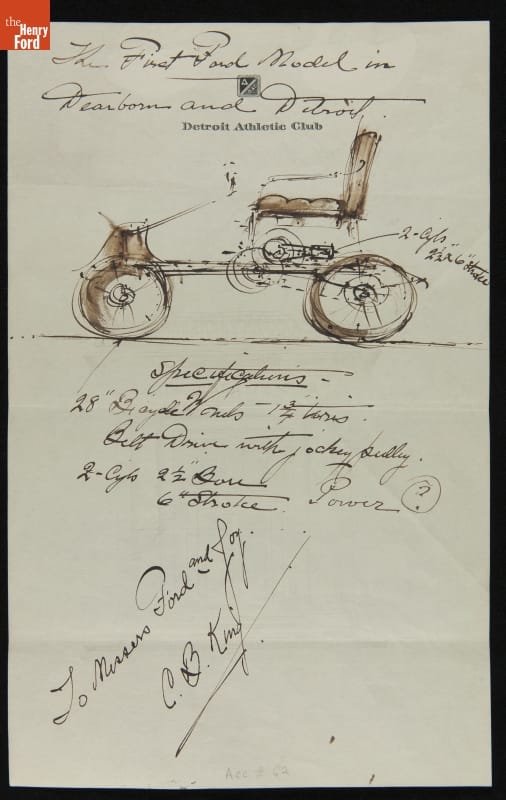 the
Henry
Ford
The First Ford Model in
Dearborn and Detroit.
Detroit Athletic Club
2-Cyls
2½" x 6" Stroke
Specifications -
28" Bicycle Wheels - 1¾" tires.
Belt Drive with jockey pulley.
2-Cyls 2½" Bore
6" Stroke. Power ?
To Messers Ford and Joy.
C. B. King.
Acc # 62